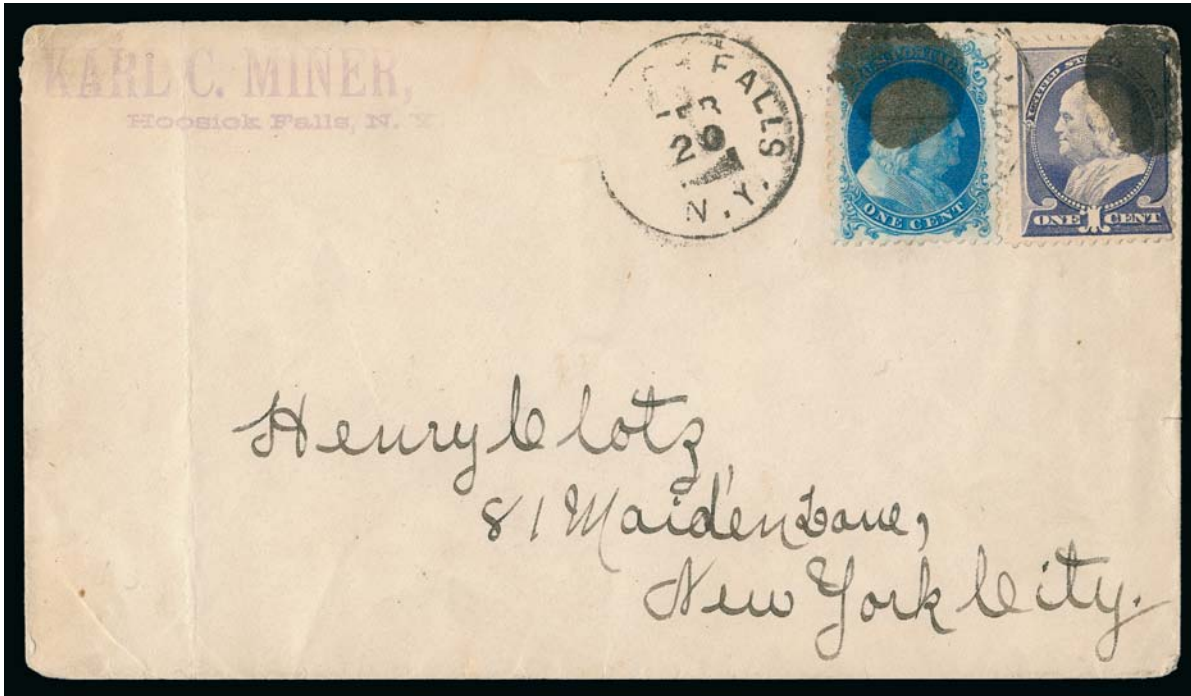 KARL C. MINER,
Hoosick Falls, N. Y
FALLS
20
N.Y.
U.S. POSTAGE
ONE CENT
UNITED STATES
ONE 1 CENT
Henry Clotz
81 Maiden Lane,
New York City.